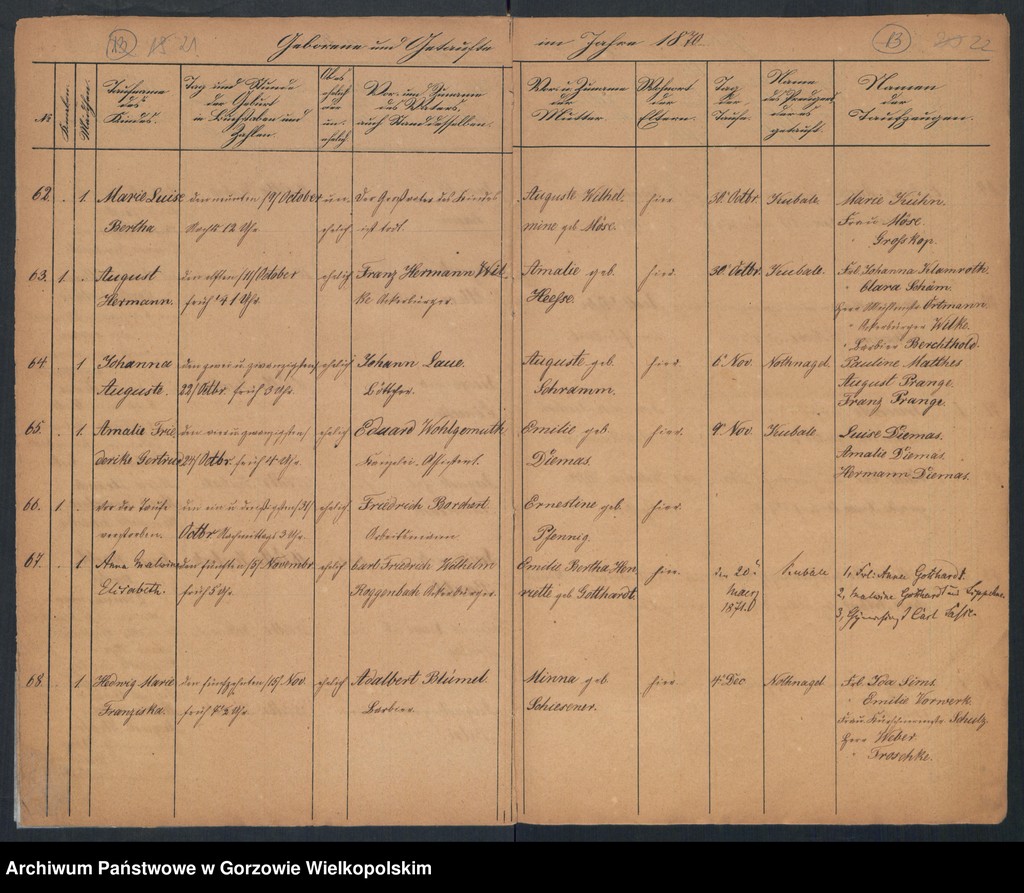 13 18 21
Geborene und Getaufte im Jahre 1870.
13 22
№
Knaben.
Mädchen.
Taufname des Kindes.
Tag und Stunde der Geburt in Buchstaben und Zahlen.
Ob es ehelich oder unehelich
Vor- und Zuname des Vaters, auch Stand desselben.
Vor- u. Zuname der Mutter.
Wohnort der Eltern.
Tag der Taufe.
Name des Predigers der es getauft.
Namen der Taufzeugen.
62. 1. Marie Luise den neunten /9/ October un- Der des Kindes Auguste Wilhel- hier 30. Octbr. Kubale Marie Kühn.
Bertha Nachts 12 Uhr ehelich ist todt. mine geb. Möse. Frau Möse.
" Großkop.
63. 1. August den elften /11/ October ehelich Franz Hermann Wil- Amalie geb. hier. 30. Octbr. Kubale. Frl. Johanna Klamroth.
Hermann. früh 1 Uhr. ke Ackerbürger. Heese. " Clara Schäm.
Herr Ortmann
" Ackerbürger Wilke.
" Barbier Berchthold.
64. 1 Johanna den zwei u. zwanzigsten ehelich Johann Laue. Auguste geb. hier. 6. Nov. Nothnagel. Pauline Matthes
Auguste. 22/ Octbr. früh 3 Uhr. Böttcher. Schramm. August Prange.
Franz Prange.
65. 1. Amalie Frie- den vier u. zwanzigsten ehelich Eduard Wohlgemuth Emilie geb. hier. 9. Nov. Kubale Luise Diemas.
derike Gertrud 24/ Octbr. früh 4 Uhr. Kanzlei-Assistent. Diemas. Amalie Diemas.
Hermann Diemas.
66. 1. vor der Taufe den ein u. dreißigsten 31/ ehelich Friedrich Borchert. Ernestine geb. hier.
verstorben. Octbr. Nachmittags 3 Uhr. Arbeitsmann Pfennig.
67. 1 Anna Malwine den fünften /5/ Novembr. ehelich Carl Friedrich Wilhelm Emilie Bertha Hen- hier. den 20. Kubale 1, Frl. Anna Gotthardt.
Elisabeth. früh 5 Uhr. Roggenbach Ackerbürger. riette geb. Gotthardt. Maerz 2, Malwine Gotthardt
1871. 3, Carl
68. 1. Hedwig Marie den fünfzehnten /15/ Nov. ehelich Adalbert Blümel. Minna geb. hier 4. Dec. Nothnagel Frl. Ida Sims.
Franziska. früh Uhr. Barbier. Schiesener. " Emilie Vorwerk.
Frau Schulz.
Herr Weber
" Froschke.
Archiwum Państwowe w Gorzowie Wielkopolskim